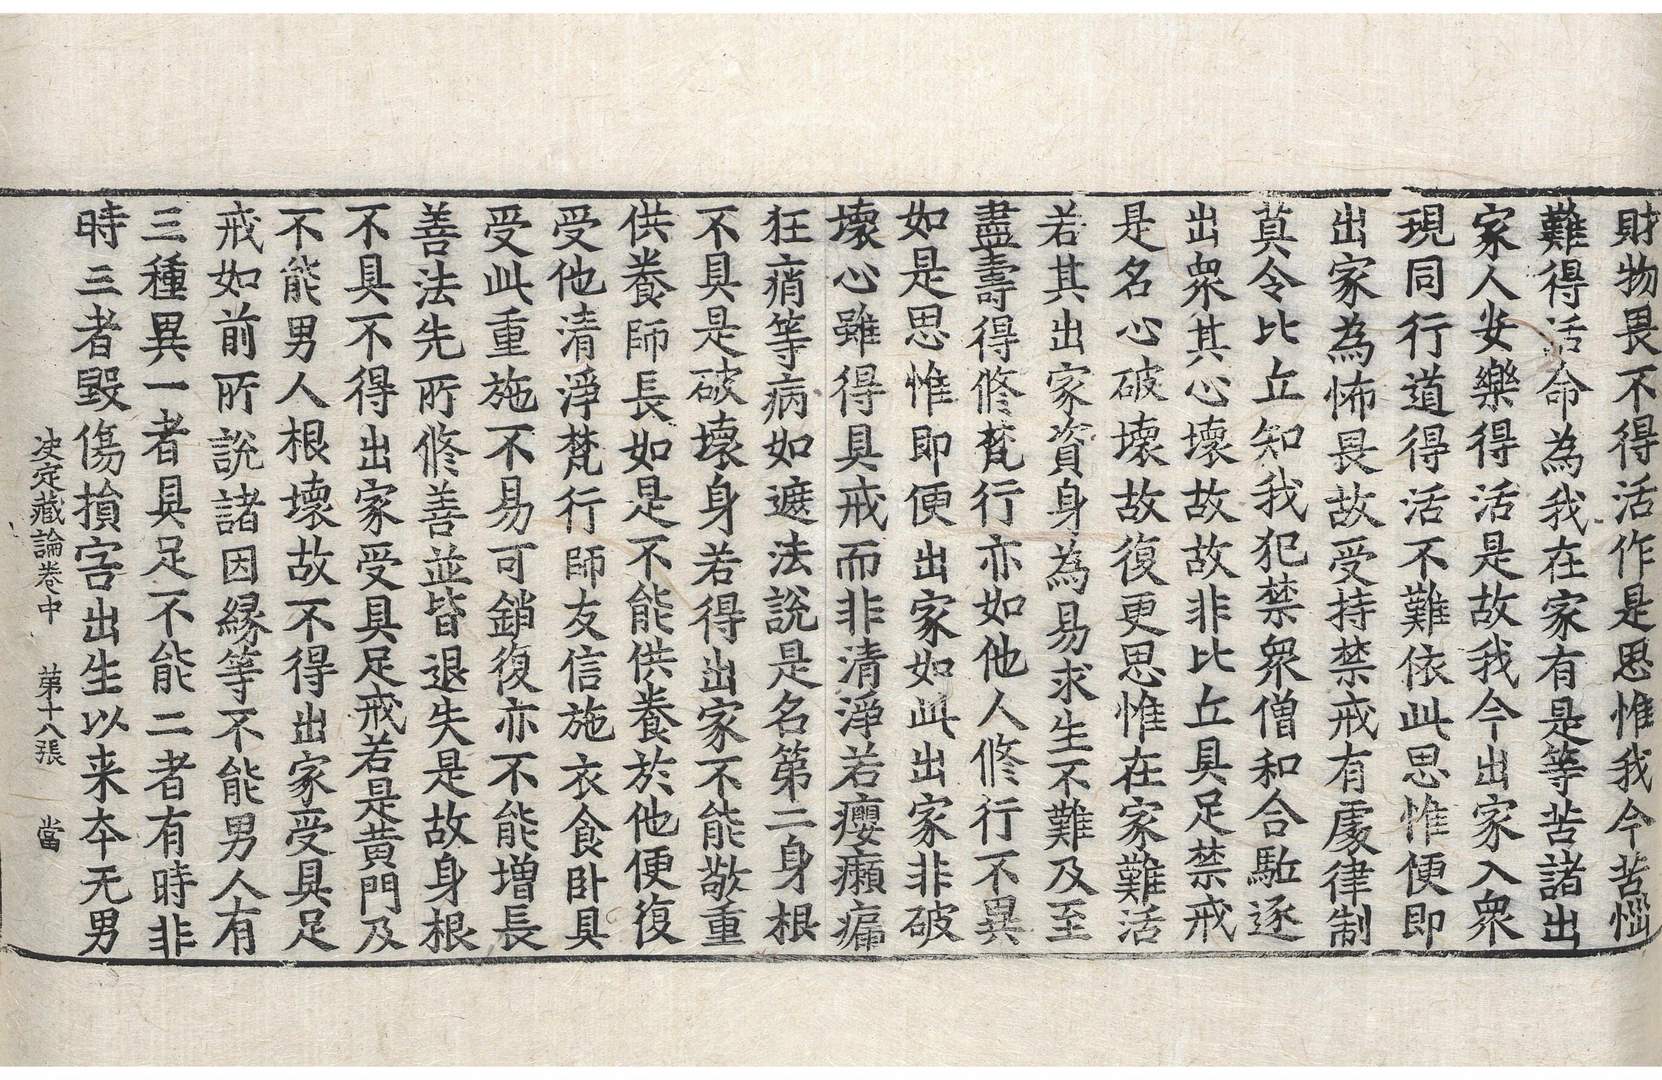 財物畏不得活作是思惟我今苦惱
難得活命為我在家有是等苦諸出
家人安樂得活是故我今出家入衆
現同行道得活不難依此思惟便即
出家為怖畏故受持禁戒有處律制
莫令比丘知我犯禁衆僧和合駈逐
出衆其心壞故故非比丘具足禁戒
是名心破壞故復更思惟在家難活
若其出家資身為易求生不難及至
盡壽得修梵行亦如他人修行不異
如是思惟即便出家如此出家非破
壞心雖得具戒而非清淨若癭癩癰
狂痟等病如遮法說是名第二身根
不具是破壞身若得出家不能敬重
供養師長如是不能供養於他便復
受他清淨梵行師友信施衣食卧具
受此重施不易可銷復亦不能增長
善法先所修善並皆退失是故身根
不具不得出家受具足戒若是黄門及
不能男人根壞故不得出家受具足
戒如前所說諸因緣等不能男人有
三種異一者具足不能二者有時非
時三者毀傷損害出生以来夲无男
决定藏論卷中　第十八張　當